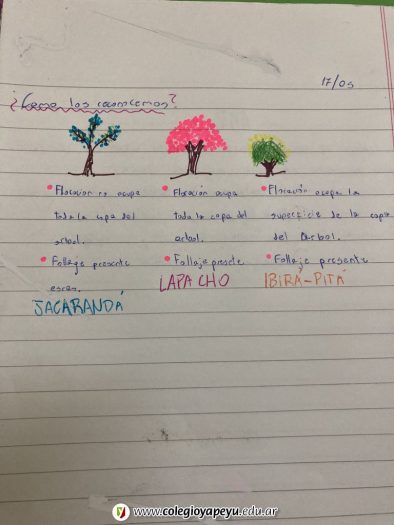 17/05
¿Como los reconocemos?
Floración no ocupa
toda la copa del
arbol.
Follage presente
escas.
JACARANDÁ
Floración ocupa
toda la copa del
arbol.
Follaje presete
LAPACHO
Floración ocupa la
superficie de la copa
del arbol.
Follaje presente
IBIRÁ-PITÁ
www.colegioyapeyu.edu.ar